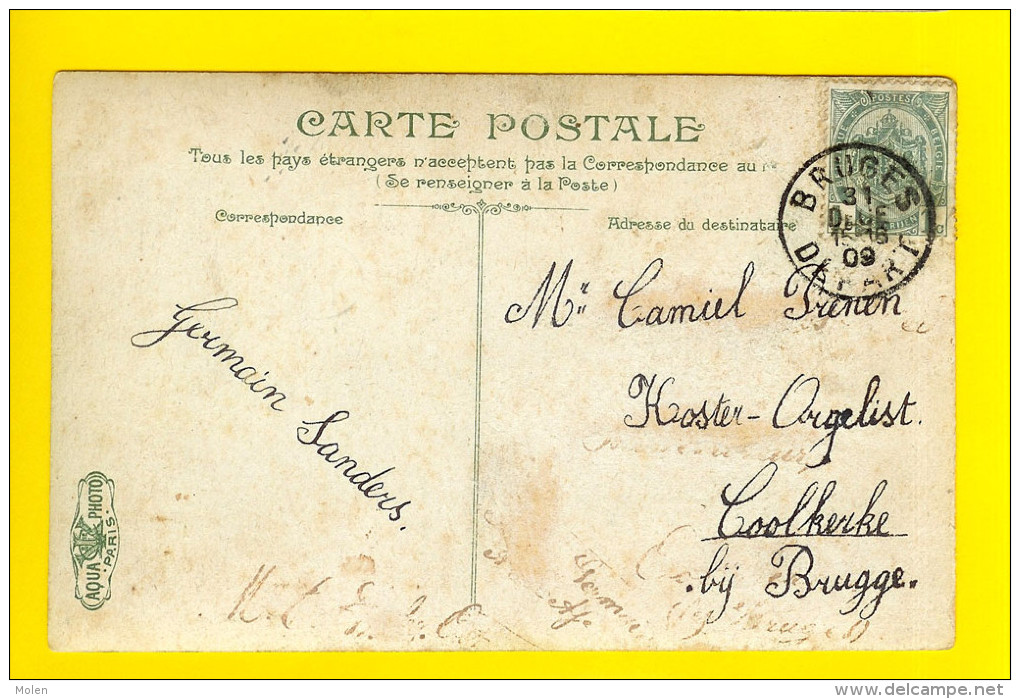 CARTE POSTALE
Tous les pays étrangers n'acceptent pas la Correspondance au
(Se renseigner à la Poste)
Correspondance
Adresse du destinataire
POSTES
BRUGES
31
DÉPART
15-16
09
Germain Sanders.
Mr Camiel Trenen
Koster-Orgelist.
Coolkerke
bij Brugge.
AQUA PHOTO
PARIS
Molen
delcampe.net